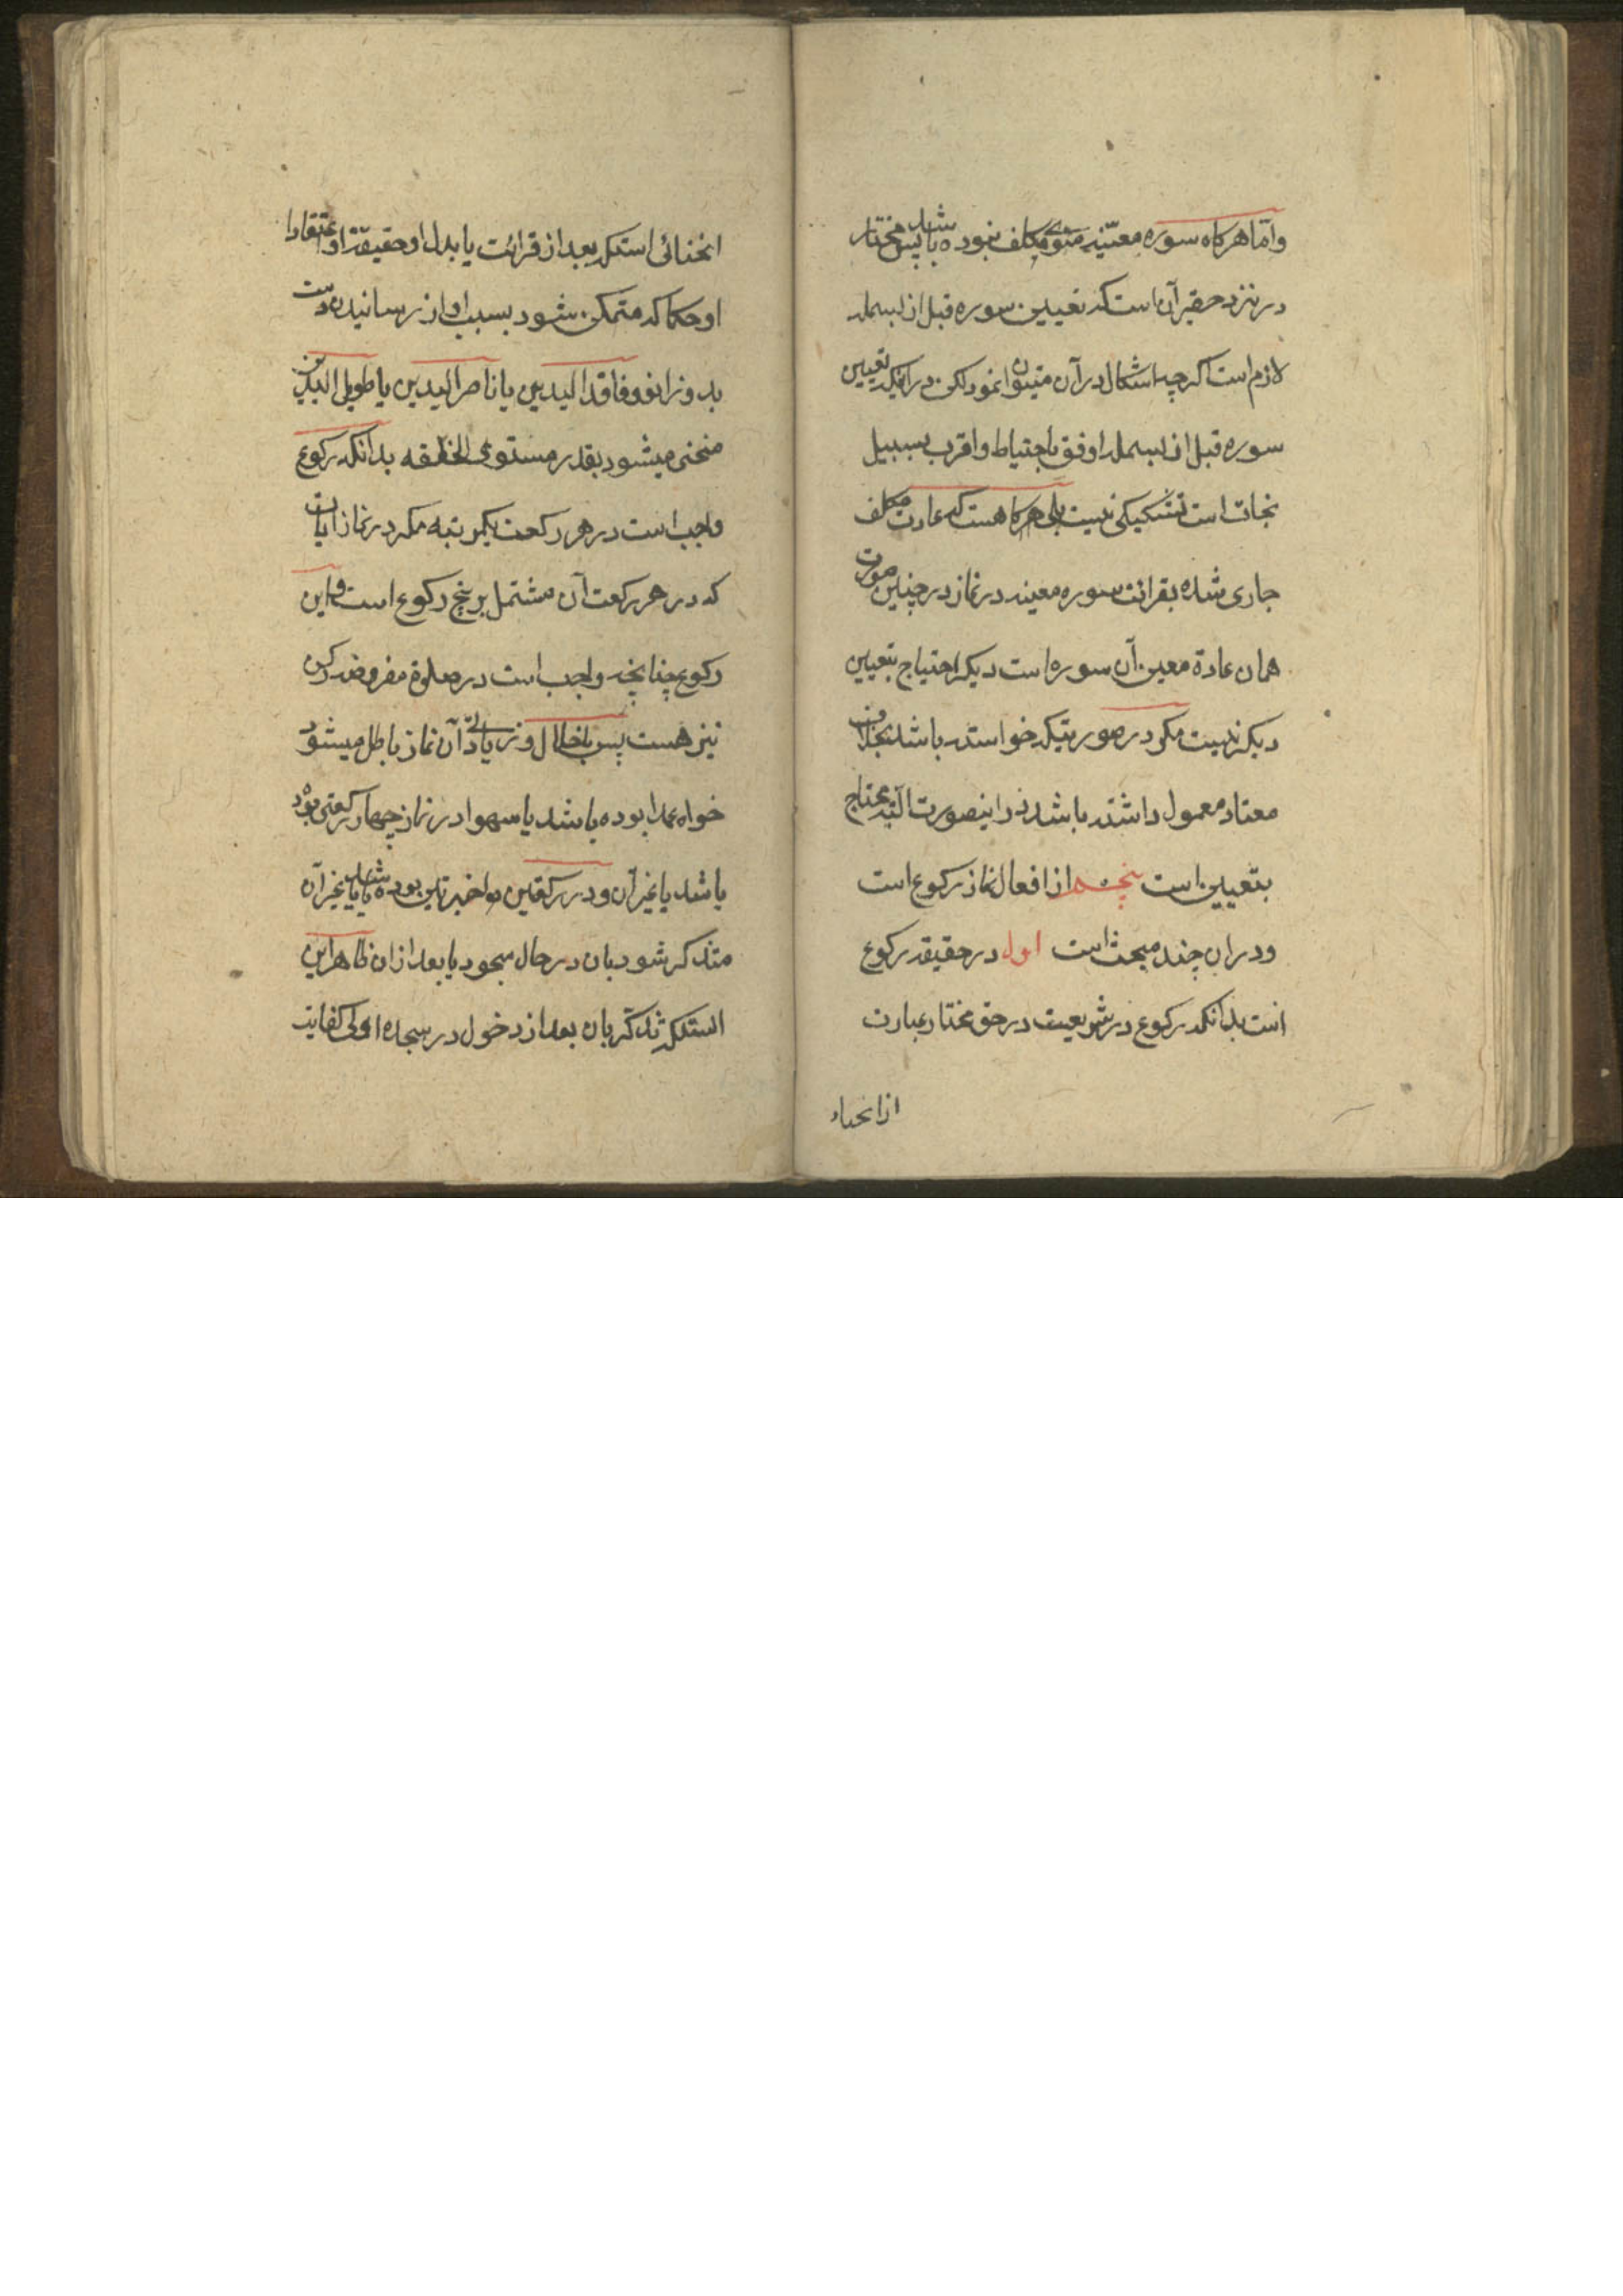 واما هرکاه سوره معینه منوی مکلف نبوده باشد پس مختار
در نزد حقیر آن است که تعیین سوره قبل از بسمله
لازم است اکرچه اشکال در آن میتوان نمود لکن در اینکه تعیین
سوره قبل از بسمله اوفق باحتیاط و اقرب بسبیل
نجات است تشکیکی نیست بلی هرکاه هست که عادت مکلف
جاری شده بقرائت سوره معینه در نماز در چنین صورت
همان عادة معین آن سوره است دیکر احتیاج بتعیین
دیکر نیست مکر در صورتیکه خواسته باشد بخلاف
معتاد معمول داشته باشد در اینصورت البته محتاج
بتعیین است پنجم از افعال نماز رکوع است
و در ان چند مبحث است اول در حقیقه رکوع
است بدانکه رکوع در شریعت در حق مختار عبارت
از انحناء
انحنائی است که بعد از قرائت یا بدل او حقیقة او اعتقادا
او حکما که متمکن شود بسبب او از رسانیدن دست
بدو زانو و فاقد الیدین یا ناصر الیدین یا طویل الیدین
منحنی میشود بقدر مستوی الخلقه بدانکه رکوع
واجب است در هر رکعت یکمرتبه مکر در نماز ایات
که در هر رکعت آن مشتمل بر پنج رکوع است و این
رکوع چنانچه واجب است در صلوة مفروضه رکن
نیز هست پس باخلال و زیادتی آن نماز باطل میشود
خواه عمدا بوده باشد یا سهوا در نماز چهار رکعتی بوده
باشد یا غیر آن و در رکعتین اخیرتین بوده باشد یا غیر آن
متذکر شود بان در حال سجود یا بعد از ان ظاهر این
است که تذکر بان بعد از دخول در سجده اولی کفایت